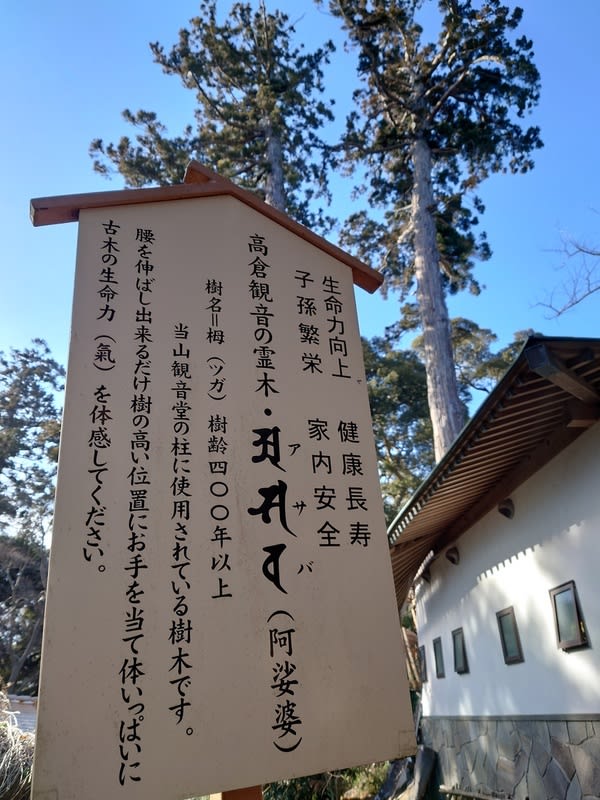 生命力向上　健康長寿
子孫繁栄　家内安全
高倉観音の霊木・𑖀𑖭𑖪（阿娑婆）
アサバ
樹名＝栂（ツガ）樹齢四〇〇年以上
当山観音堂の柱に使用されている樹木です。
腰を伸ばし出来るだけ樹の高い位置にお手を当て体いっぱいに
古木の生命力（氣）を体感してください。